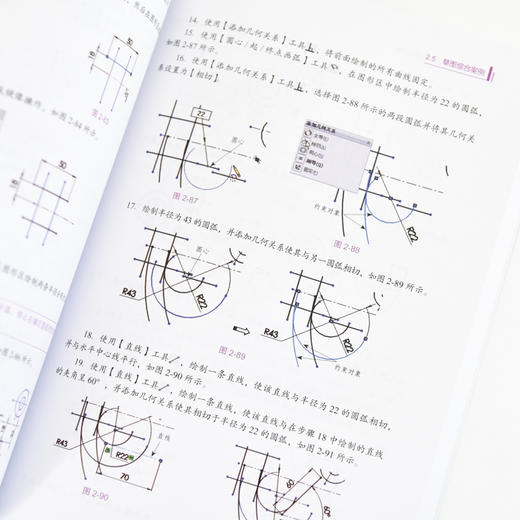 然后在图形
50
16
图2-83
及镜像操作，如图2-84所示。
50
16
2.5 草图综合案例
14. 使用【添加几何关系】工具，将前面绘制的所有曲线固定。
15. 使用【圆心/起/终点画弧】工具，在图形区中绘制半径为22的圆弧，
如图2-87所示。
16. 使用【添加几何关系】工具，选择图2-88所示的两段圆弧并将其几何关
系设置为【相切】。
22
圆心
图 2-87
添加几何关系
全等(R)
相切(A)
同心(N)
相等(Q)
固定(F)
约束对象
约束对象
图 2-88
17. 绘制半径为43的圆弧，并添加几何关系使其与另一圆弧相切，如图2-89所示。
圆心
R43
R22
R43
R22
图 2-89
18. 使用【直线】工具，绘制一条直线，使该直线与半径为22的圆弧相切，
并与水平中心线平行，如图2-90所示。
19. 使用【直线】工具，绘制一条直线，使该直线与在步骤18中绘制的直线
的夹角呈60°，并添加几何关系使其相切于半径为22的圆弧，如图2-91所示。
R43
直线
R22
70
图 2-90
60
R22